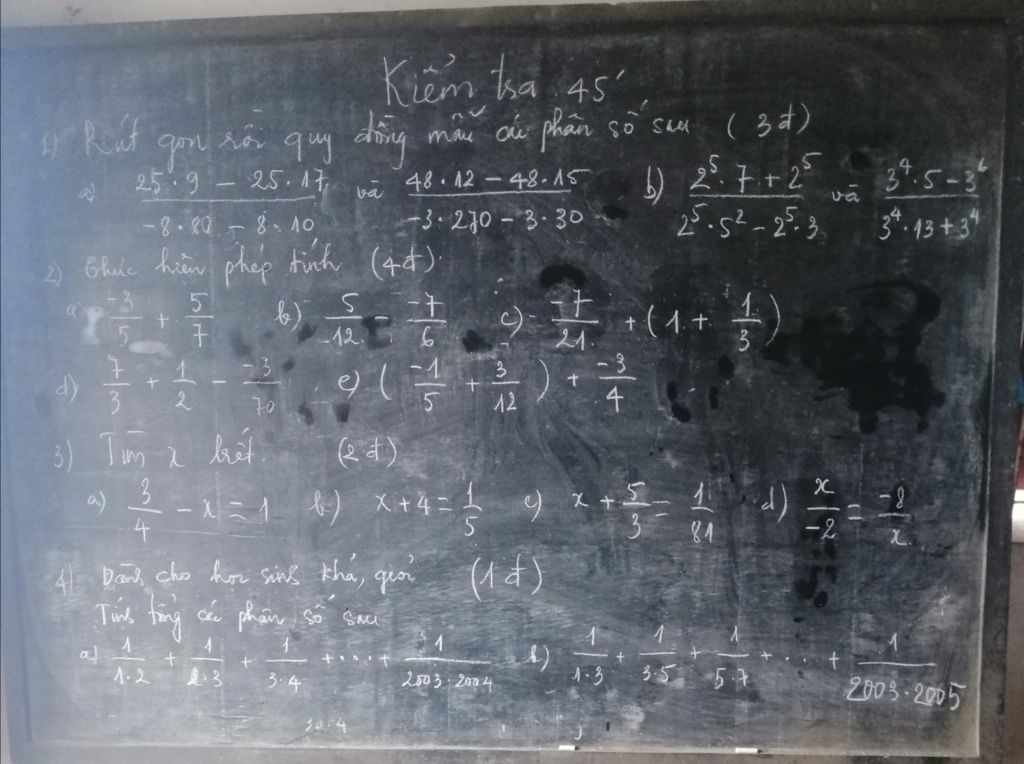 Kiểm tra 45'
1) Rút gọn rồi quy đồng mẫu các phân số sau (3đ)
a) (25·9 − 25·17)/(−8·80 − 8·10) và (48·12 − 48·15)/(−3·270 − 3·30) b) (2⁵·7 + 2⁵)/(2⁵·5² − 2⁵·3) và (3⁴·5 − 3⁶)/(3⁴·13 + 3⁴)
2) Thực hiện phép tính (4đ)
a) −3/5 + 5/7 b) 5/12 − −7/6 c) −7/21 + (1 + 1/3)
d) 7/3 + 1/2 − −3/70 e) (−1/5 + 3/12) + −3/4
3) Tìm x biết. (2đ)
a) 3/4 − x = 1 b) x + 4 = 1/5 c) x + 5/3 = 1/81 d) x/−2 = −8/x
4) Dành cho học sinh khá, giỏi (1đ)
Tính tổng các phân số sau
a) 1/1·2 + 1/2·3 + 1/3·4 + .... + 1/2003·2004 b) 1/1·3 + 1/3·5 + 1/5·7 + ... + 1/2003·2005